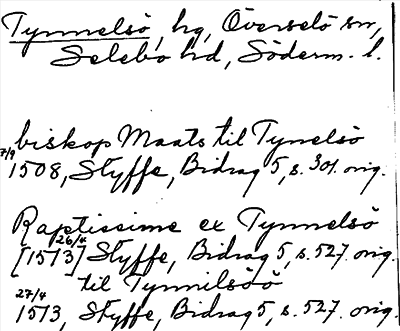 Tynnelsö, hg, Överselö sn,
Selebo hd, Söderm. l.
biskop Maats til Tynelsö
7/9 1508, Styffe, Bidrag 5, s. 301. orig.
Raptissime ex Tynnelsö
[26/4 1513] Styffe, Bidrag 5, s. 527. orig.
til Tynnilsöö
27/4 1513, Styffe, Bidrag 5, s. 527. orig.